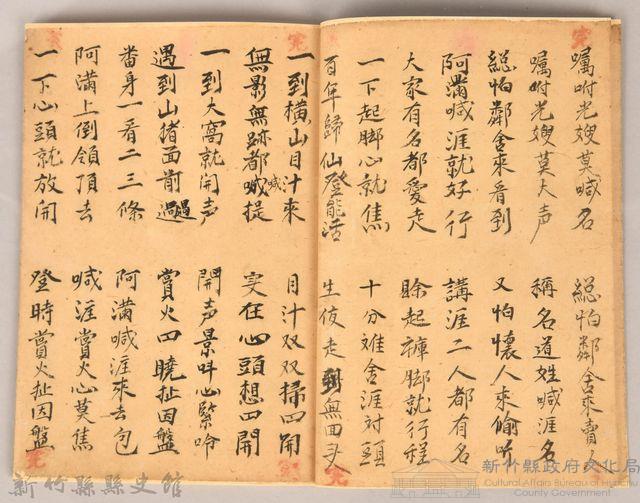 嘱咐光嫂莫喊名
總怕鄰舍來賣文
嘱咐光嫂莫大声
稱名道姓喊涯名
総怕鄰舍來看到
又怕懷人來偷听
阿滿喊涯就好行
講涯二人都有名
大家有名都愛走
賒起褲脚就行程
一下起脚心就焦
十分难舍涯对頭
百年歸仙登能活
生伎走到無回头
一到横山目汁來
目汁双双掃四開
無影無跡都喊提
喊
実在心頭想四開
一到大窩就開声
開声景呌心緊吟
遇到山猪面前過
遇
賞火四曉扯因盤
番身一看二三條
阿滿喊涯來去包
阿滿上倒領頂去
喊涯賞火心莫焦
一下心頭就放開
登時賞火扯因盤
新竹縣縣史館
新竹縣政府文化局
Cultural Affairs Bureau of Hsinchu County Government